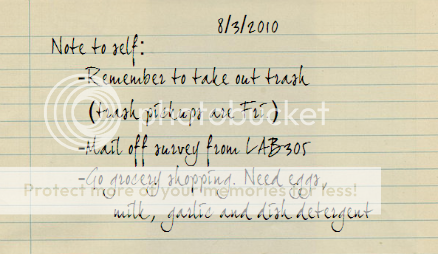 8/3/2010
Note to self:
-Remember to take out trash
(trash pickups are Fri)
photobucket
-Mail off survey from LAB305
-Go grocery shopping. Need eggs,
Protect more of your memories for less!
milk, garlic and dish detergent